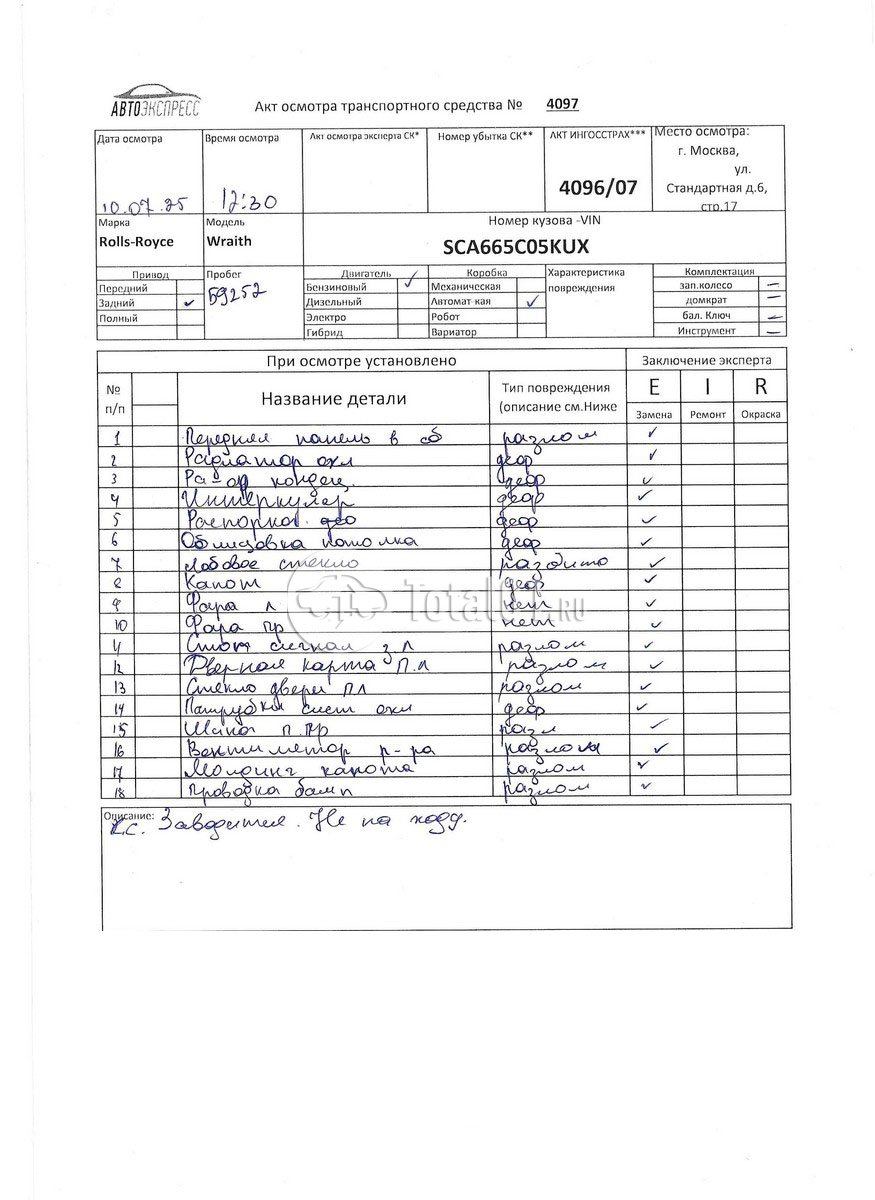 АВТОЭКСПРЕСС
Акт осмотра транспортного средства № 4097
Дата осмотра
Время осмотра
Акт осмотра эксперта СК*
Номер убытка СК**
АКТ ИНГОССТРАХ***
Место осмотра:
г. Москва,
ул.
Стандартная д.6,
стр.17
10.07.25
12:30
4096/07
Марка
Модель
Номер кузова -VIN
Rolls-Royce
Wraith
SCA665C05KUX
Привод
Пробег
Двигатель
Коробка
Характеристика
повреждения
Комплектация
Передний
59252
Бензиновый ✓
Механическая
зап.колесо –
Задний ✓
Дизельный
Автомат кая ✓
домкрат –
Полный
Электро
Робот
бал. Ключ –
Гибрид
Вариатор
Инструмент –
При осмотре установлено
Заключение эксперта
№
п/п
Название детали
Тип повреждения
(описание см.Ниже
E I R
Замена Ремонт Окраска
1 Передняя панель в сб разлом ✓
2 Радиатор охл деф ✓
3 Ра-ор кондец. деф ✓
4 Интеркулер деф ✓
5 Распорка деф ✓
6 Облицовка потолка деф ✓
7 Лобовое стекло разбито ✓
8 Капот деф ✓
9 Фара л нет ✓
10 Фара пр нет ✓
11 Стоп сигнал з.л разлом ✓
12 Дверная карта п.л разлом ✓
13 Стекло двери пл разлом ✓
14 Патрубки сист охл деф ✓
15 Шина п.пр разл ✓
16 Вентилятор р-ра разлом ✓
17 Молдинг капота разлом ✓
18 Проводка бамп разлом ✓
Total01.RU
Описание:
Заводится. Не на ходу.